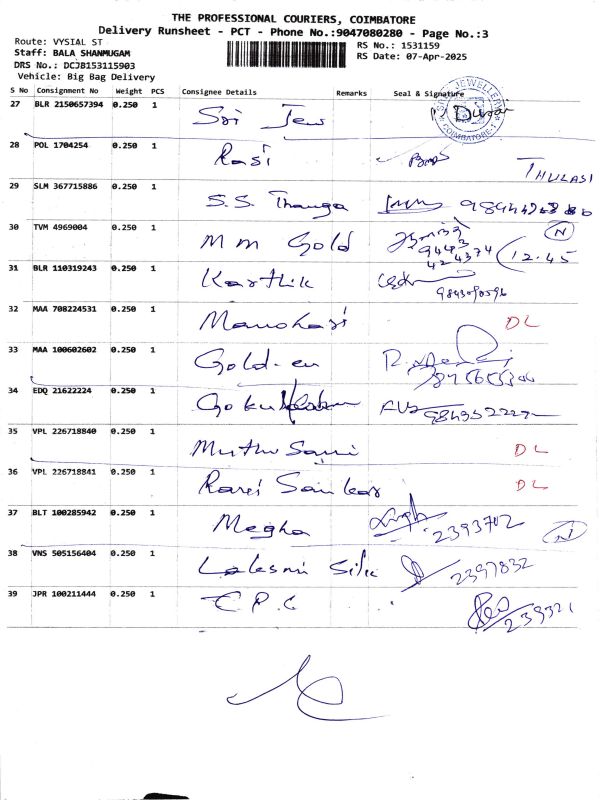 THE PROFESSIONAL COURIERS, COIMBATORE
Delivery Runsheet - PCT - Phone No.:9047080280 - Page No.:3
Route: VYSIAL ST
RS No.: 1531159
Staff: BALA SHANMUGAM
RS Date: 07-Apr-2025
DRS No.: DCJB153115903
Vehicle: Big Bag Delivery
S No Consignment No Weight PCS Consignee Details Remarks Seal & Signature
27 BLR 2150657394 0.250 1 Sri Jew
JEWELLERY COIMBATORE-1
28 POL 1704254 0.250 1 Rasi THULASI
29 SLM 367715886 0.250 1 S.S. Thanga
30 TVM 4969004 0.250 1 M M Gold 9443 424374 12.45 N
31 BLR 110319243 0.250 1 Karthik
32 MAA 708224531 0.250 1 Manohari DL
33 MAA 100602602 0.250 1 Gold-en
34 EDQ 21622224 0.250 1
35 VPL 226718840 0.250 1 Muthu Sami DL
36 VPL 226718841 0.250 1 DL
37 BLT 100285942 0.250 1 Megha 2393702 N
38 VNS 505156404 0.250 1 Laksmi Silk 2397832
39 JPR 100211444 0.250 1 E.P.C 239321